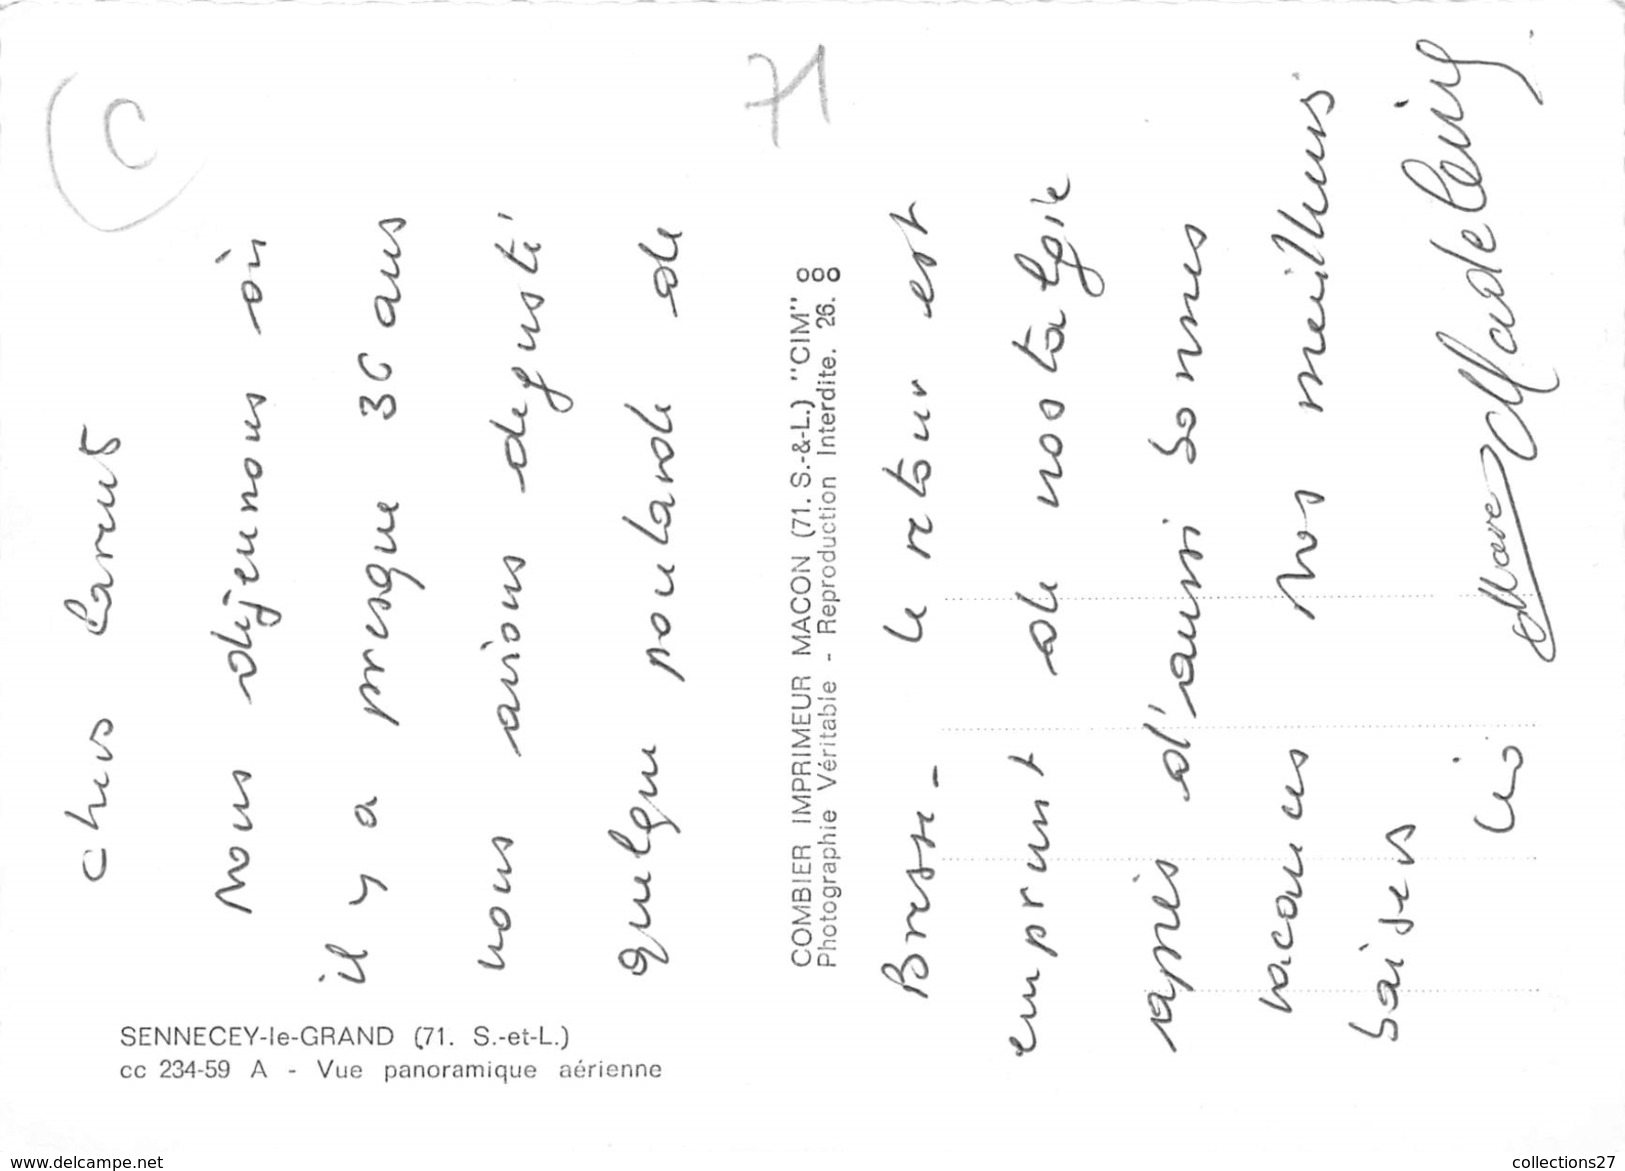 C
71
Chers Carnus
Nous déjeunons où
il y a presque 30 ans
nous avions dégusté
quelque poularde de
Bresse - le retour est
emprunt de nostalgie
après d'aussi bonnes
vacances Nos meilleurs
baisers
Marc Madeleine
COMBIER IMPRIMEUR MACON (71. S.-&-L.) "CIM"
Photographie Véritable - Reproduction Interdite. 26.
SENNECEY-le-GRAND (71. S.-et-L.)
cc 234-59 A - Vue panoramique aérienne
www.delcampe.net
collections27